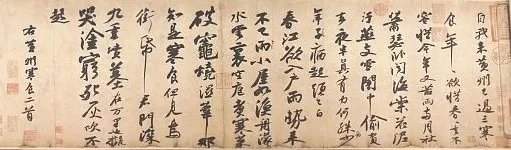 自我來黃州已過三寒
食年〃欲惜春〃去不
容惜今年又苦雨兩月秋
蕭瑟臥聞海棠花泥
汙燕支雪闇中偷負
去夜半真有力何殊少
年子病起頭已白
春江欲入戶雨勢來
不已雨小屋如漁舟濛〃
水雲裏空庖煮寒菜
破竈燒濕葦那
知是寒食但見烏
銜帋君門深
九重墳墓在萬里也擬
哭塗窮死灰吹不
起
右黃州寒食二首